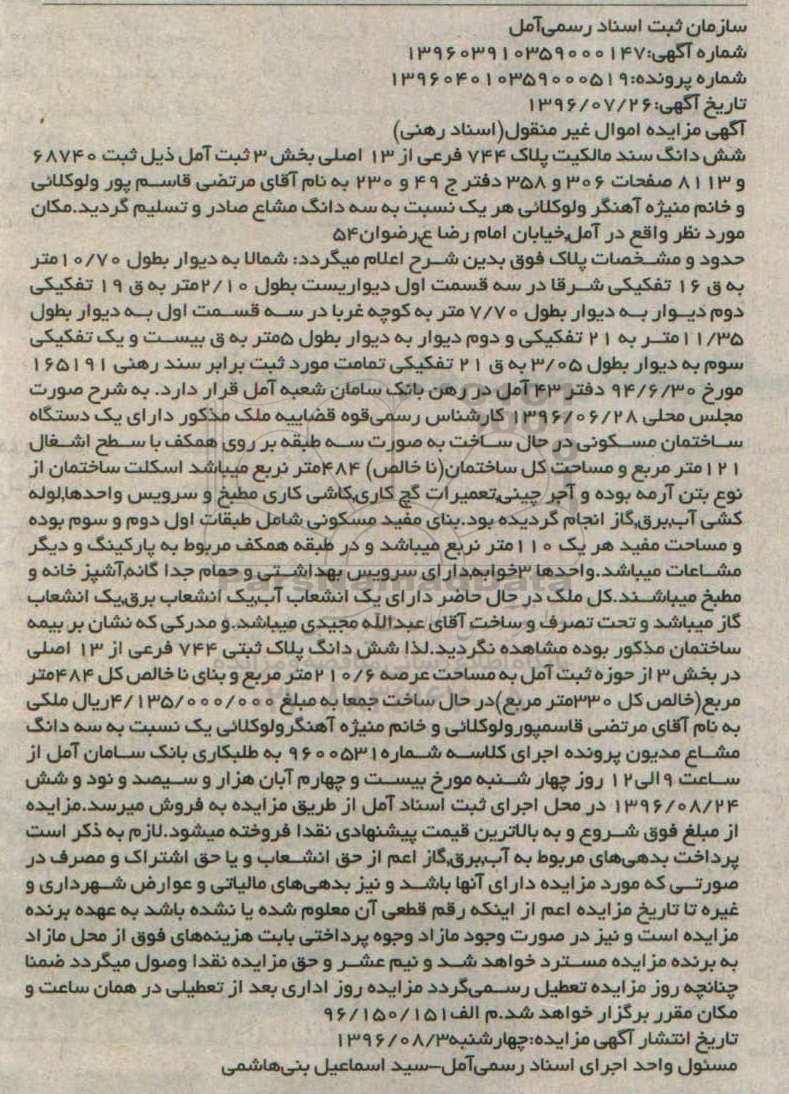 سازمان ثبت اسناد رسمی‌آمل
شماره آگهی:۱۳۹۶۰۳۹۱۰۳۵۹۰۰۰۱۴۷
شماره پرونده:۱۳۹۶۰۴۰۱۰۳۵۹۰۰۰۵۱۹
تاریخ آگهی:۱۳۹۶/۰۷/۲۶
آگهی مزایده اموال غیر منقول(اسناد رهنی)
شش دانگ سند مالکیت پلاک ۷۴۴ فرعی از ۱۳ اصلی بخش ۳ ثبت آمل ذیل ثبت ۶۸۷۴۰
و ۸۱۱۳ صفحات ۳۰۶ و ۳۵۸ دفتر ج ۴۹ و ۲۳۰ به نام آقای مرتضی قاسم پور ولوکلائی
و خانم منیژه آهنگر ولوکلائی هر یک نسبت به سه دانگ مشاع صادر و تسلیم گردید.مکان
مورد نظر واقع در آمل،خیابان امام رضا ع،رضوان۵۴
حدود و مشخصات پلاک فوق بدین شرح اعلام میگردد: شمالا به دیوار بطول ۱۰/۷۰متر
به ق ۱۶ تفکیکی شرقا در سه قسمت اول دیواریست بطول ۲/۱۰متر به ق ۱۹ تفکیکی
دوم دیوار به دیوار بطول ۷/۷۰ متر به کوچه غربا در سه قسمت اول به دیوار بطول
۱۱/۳۵متر به ۲۱ تفکیکی و دوم دیوار به دیوار بطول ۵متر به ق بیست و یک تفکیکی
سوم به دیوار بطول ۳/۰۵ به ق ۲۱ تفکیکی تمامت مورد ثبت برابر سند رهنی ۱۶۵۱۹۱
مورخ ۹۴/۶/۳۰ دفتر ۴۳ آمل در رهن بانک سامان شعبه آمل قرار دارد. به شرح صورت
مجلس محلی ۱۳۹۶/۰۶/۲۸ کارشناس رسمی‌قوه قضاییه ملک مذکور دارای یک دستگاه
ساختمان مسکونی در حال ساخت به صورت سه طبقه بر روی همکف با سطح اشغال
۱۲۱متر مربع و مساحت کل ساختمان(نا خالص) ۴۸۴متر نربع میباشد اسکلت ساختمان از
نوع بتن آرمه بوده و آجر چینی،تعمیرات گچ کاری،کاشی کاری مطبخ و سرویس واحدها،لوله
کشی آب،برق،گاز انجام گردیده بود.بنای مفید مسکونی شامل طبقات اول دوم و سوم بوده
و مساحت مفید هر یک ۱۱۰متر نربع میباشد و در طبقه همکف مربوط به پارکینگ و دیگر
مشاعات میباشد.واحدها ۳خوابه،دارای سرویس بهداشتی و حمام جدا گانه،آشپز خانه و
مطبخ میباشند.کل ملک در حال حاضر دارای یک انشعاب آب،یک انشعاب برق،یک انشعاب
گاز میباشد و تحت تصرف و ساخت آقای عبدالله مجیدی میباشد.و مدرکی که نشان بر بیمه
ساختمان مذکور بوده مشاهده نگردید.لذا شش دانگ پلاک ثبتی ۷۴۴ فرعی از ۱۳ اصلی
در بخش ۳ از حوزه ثبت آمل به مساحت عرصه ۲۱۰/۶متر مربع و بنای نا خالص کل ۴۸۴متر
مربع(خالص کل ۳۳۰متر مربع)در حال ساخت جمعا به مبلغ ۴/۱۳۵/۰۰۰/۰۰۰ریال ملکی
به نام آقای مرتضی قاسمپورولوکلائی و خانم منیژه آهنگرولوکلائی یک نسبت به سه دانگ
مشاع مدیون پرونده اجرای کلاسه شماره۹۶۰۰۵۳۱ به طلبکاری بانک سامان آمل از
ساعت ۹الی۱۲ روز چهار شنبه مورخ بیست و چهارم آبان هزار و سیصد و نود و شش
۱۳۹۶/۰۸/۲۴ در محل اجرای ثبت اسناد آمل از طریق مزایده به فروش میرسد.مزایده
از مبلغ فوق شروع و به بالاترین قیمت پیشنهادی نقدا فروخته میشود.لازم به ذکر است
پرداخت بدهی‌های مربوط به آب،برق،گاز اعم از حق انشعاب و یا حق اشتراک و مصرف در
صورتی که مورد مزایده دارای آنها باشد و نیز بدهی‌های مالیاتی و عوارض شهرداری و
غیره تا تاریخ مزایده اعم از اینکه رقم قطعی آن معلوم شده یا نشده باشد به عهده برنده
مزایده است و نیز در صورت وجود مازاد وجوه پرداختی بابت هزینه‌های فوق از محل مازاد
به برنده مزایده مسترد خواهد شد و نیم عشر و حق مزایده نقدا وصول میگردد ضمنا
چنانچه روز مزایده تعطیل رسمی‌گردد مزایده روز اداری بعد از تعطیلی در همان ساعت و
مکان مقرر برگزار خواهد شد.م الف۹۶/۱۵۰/۱۵۱
تاریخ انتشار آگهی مزایده:چهارشنبه۱۳۹۶/۰۸/۳
مسئول واحد اجرای اسناد رسمی‌آمل–سید اسماعیل بنی‌هاشمی